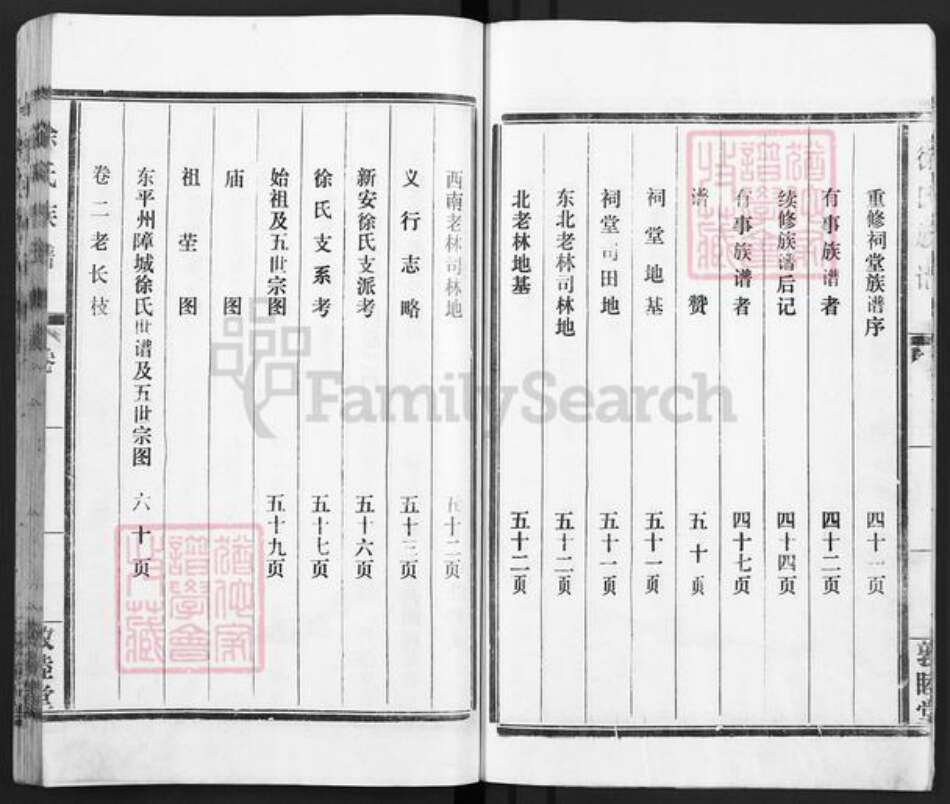 重修祠堂族谱序 四十一页
有事族谱者 四十二页
续修族谱后记 四十四页
有事族谱者 四十七页
谱赞 五十页
祠堂地基 五十一页
祠堂司田地 五十一页
东北老林司林地 五十二页
北老林地基 五十二页
敦睦堂
西南老林司林地 五十二页
义行志略 五十三页
新安徐氏支派考 五十六页
徐氏支系考 五十七页
始祖及五世宗图 五十九页
庙图
祖茔图
东平州障城徐氏世谱及五世宗图 六十页
卷二老长枝
徐氏族谱
敦睦堂
FamilySearch